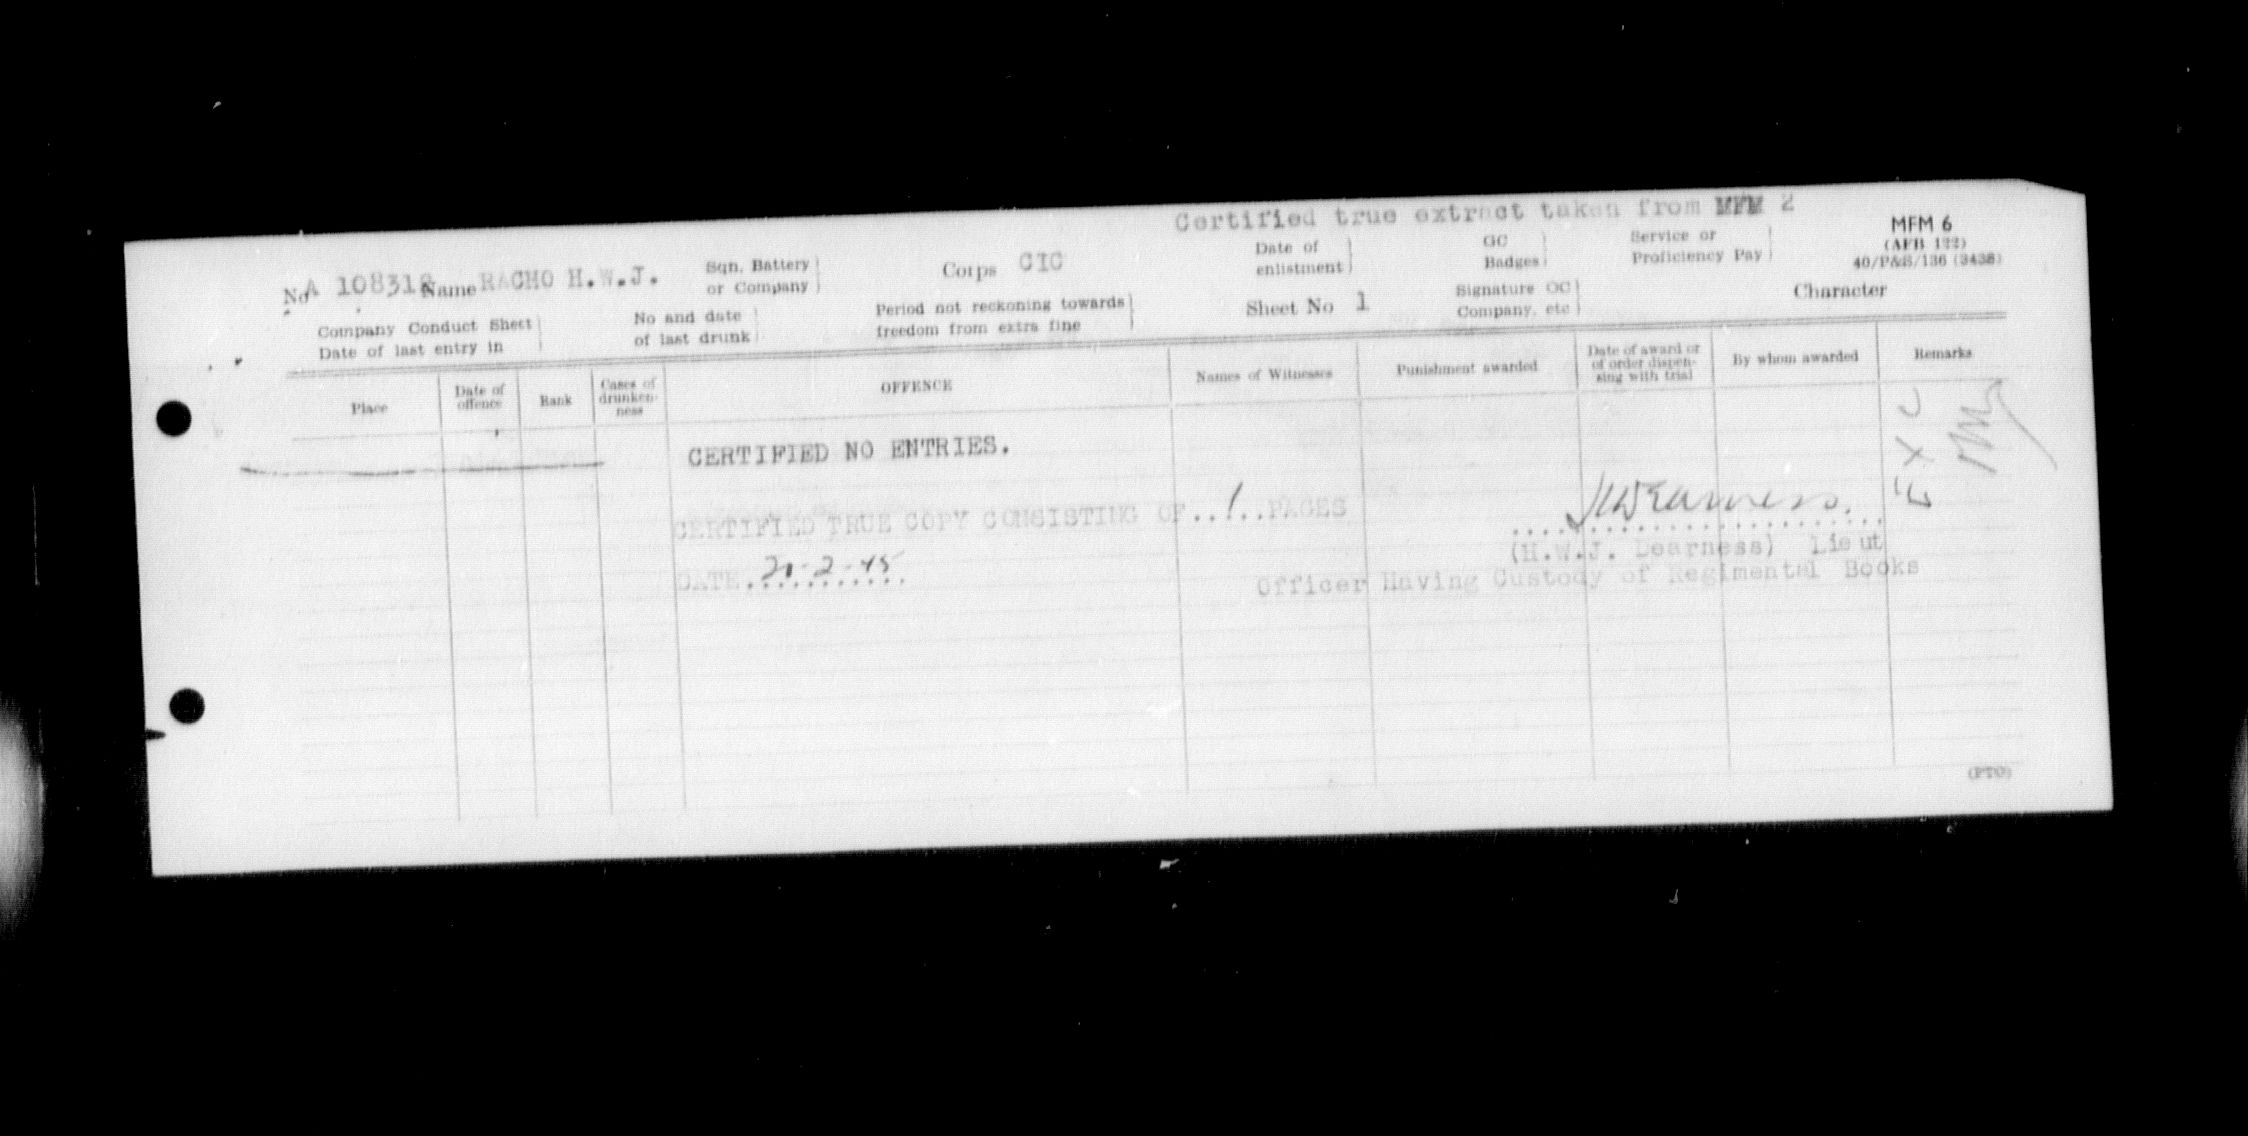 Certified true extract taken from MFM 2
MFM 6
(AFB 122)
40/P&S/136 (3438)
No A 108318 Name RACHO H.W.J.
Sqn. Battery or Company
Corps CIC
Date of enlistment
GC Badges
Service or Proficiency Pay
Company Conduct Sheet
Date of last entry in
No and date of last drunk
Period not reckoning towards freedom from extra fine
Sheet No 1
Signature OC Company, etc
Character
Place
Date of offence
Rank
Cases of drunkenness
OFFENCE
Names of Witnesses
Punishment awarded
Date of award or of order dispensing with trial
By whom awarded
Remarks
CERTIFIED NO ENTRIES.
EXC
CERTIFIED TRUE COPY CONSISTING OF..1..PAGES
DATE 21-2-45
(H.W.J. Dearness) Lieut
Officer Having Custody of Regimental Books
(PTO)